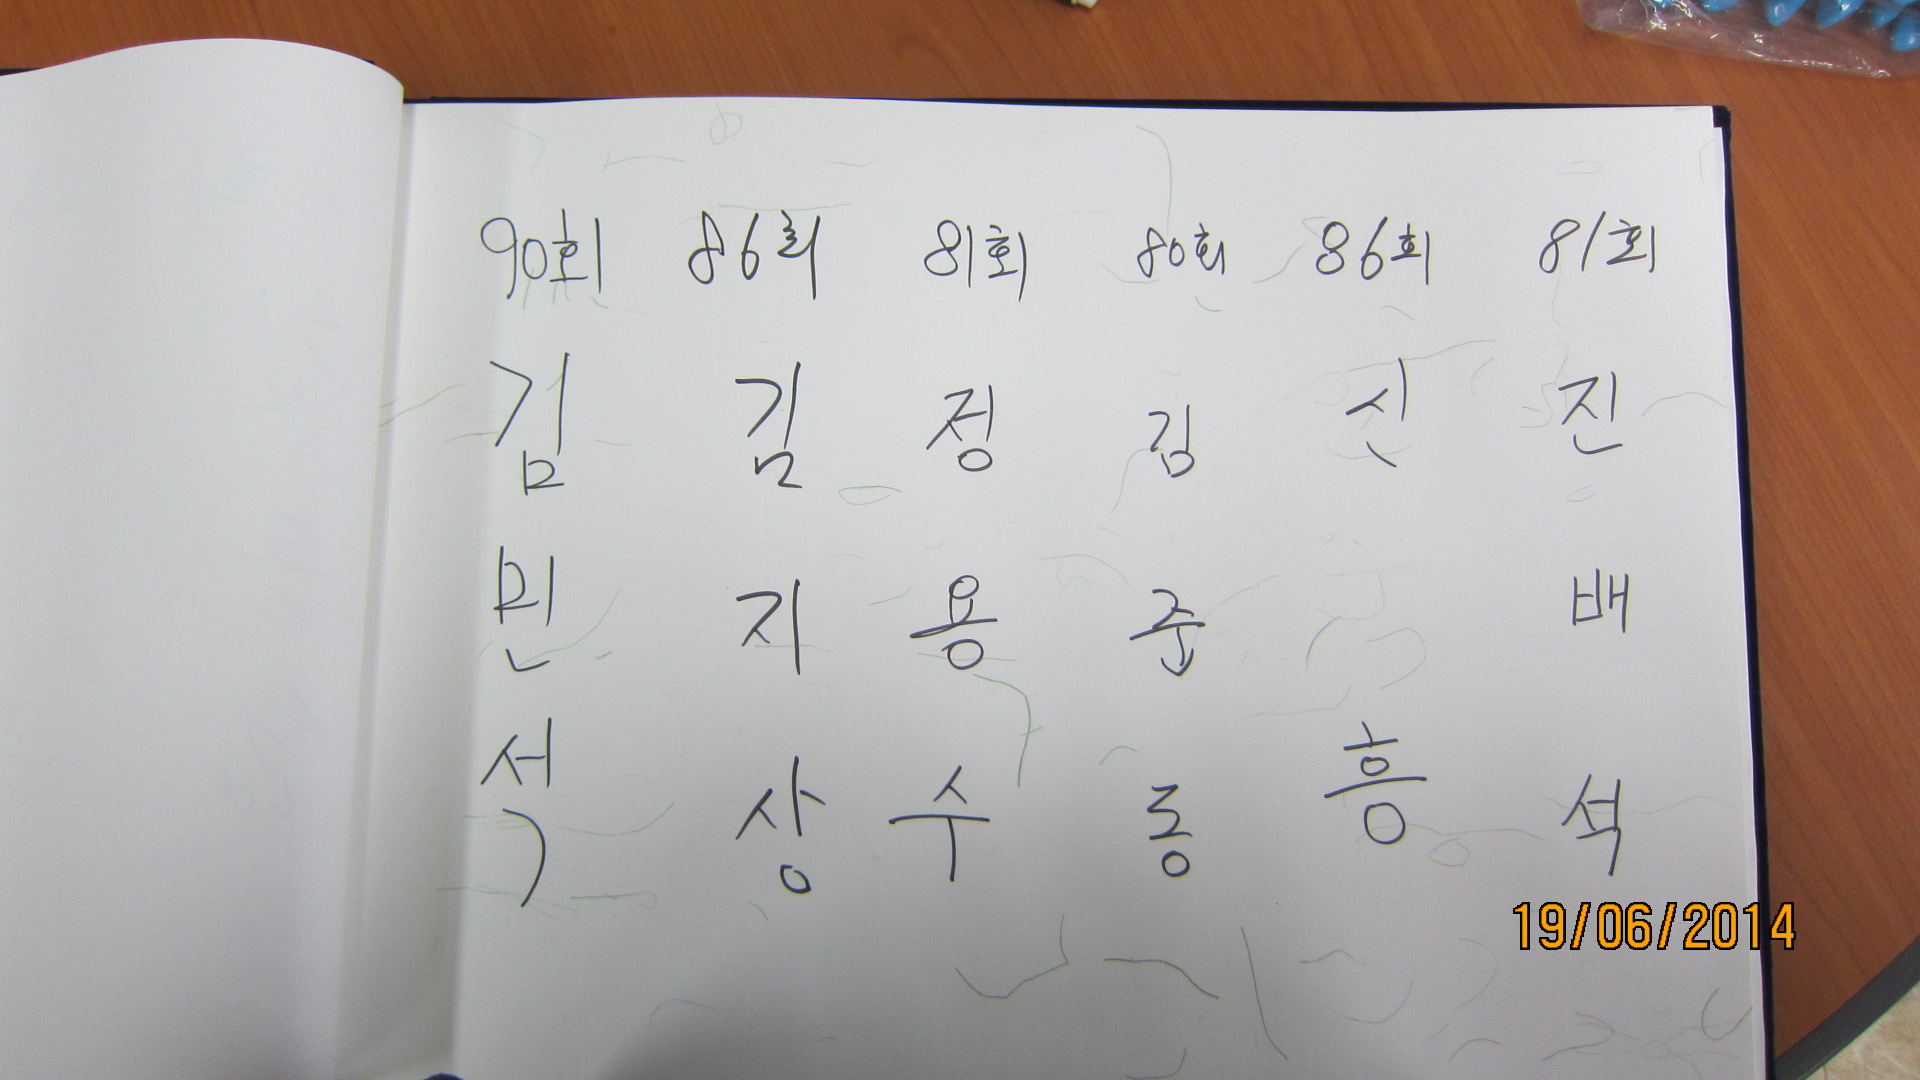 90회 86회 81회 80회 86회 81회
김 김 정 김 신 진
민 지 용 준 배
석 상 수 롱 흥 석
19/06/2014